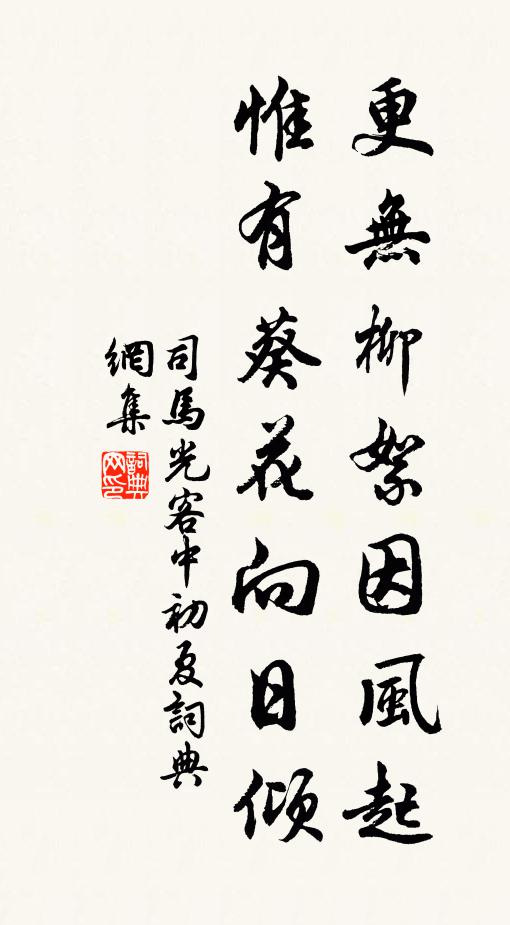 更無柳絮因風起
惟有葵花向日傾
司馬光客中初夏詞典
網集